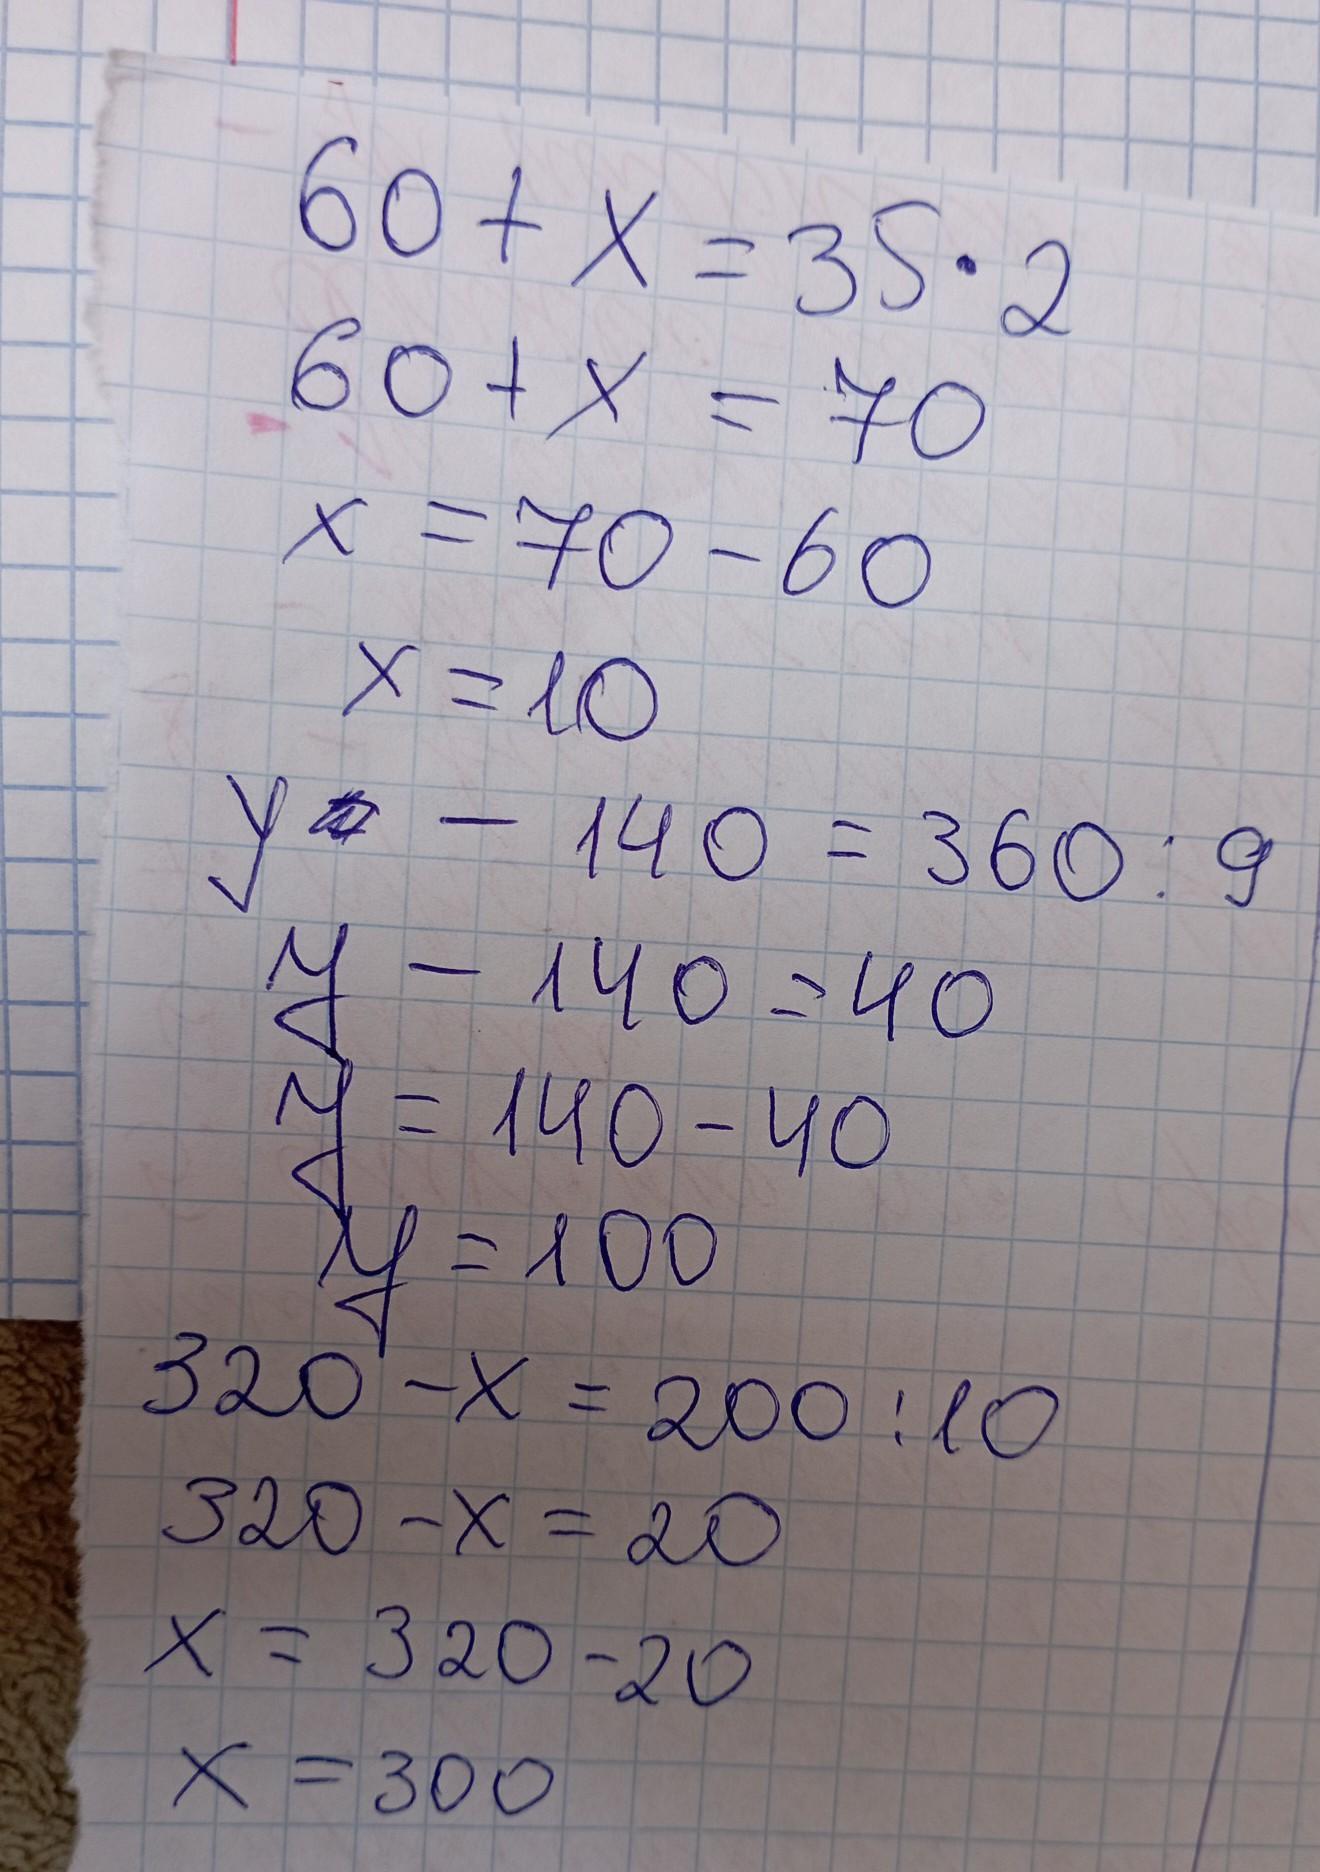 60 + x = 35 · 2
60 + x = 70
x = 70 - 60
x = 10
y - 140 = 360 : 9
y - 140 = 40
y = 140 - 40
y = 100
320 - x = 200 : 10
320 - x = 20
x = 320 - 20
x = 300